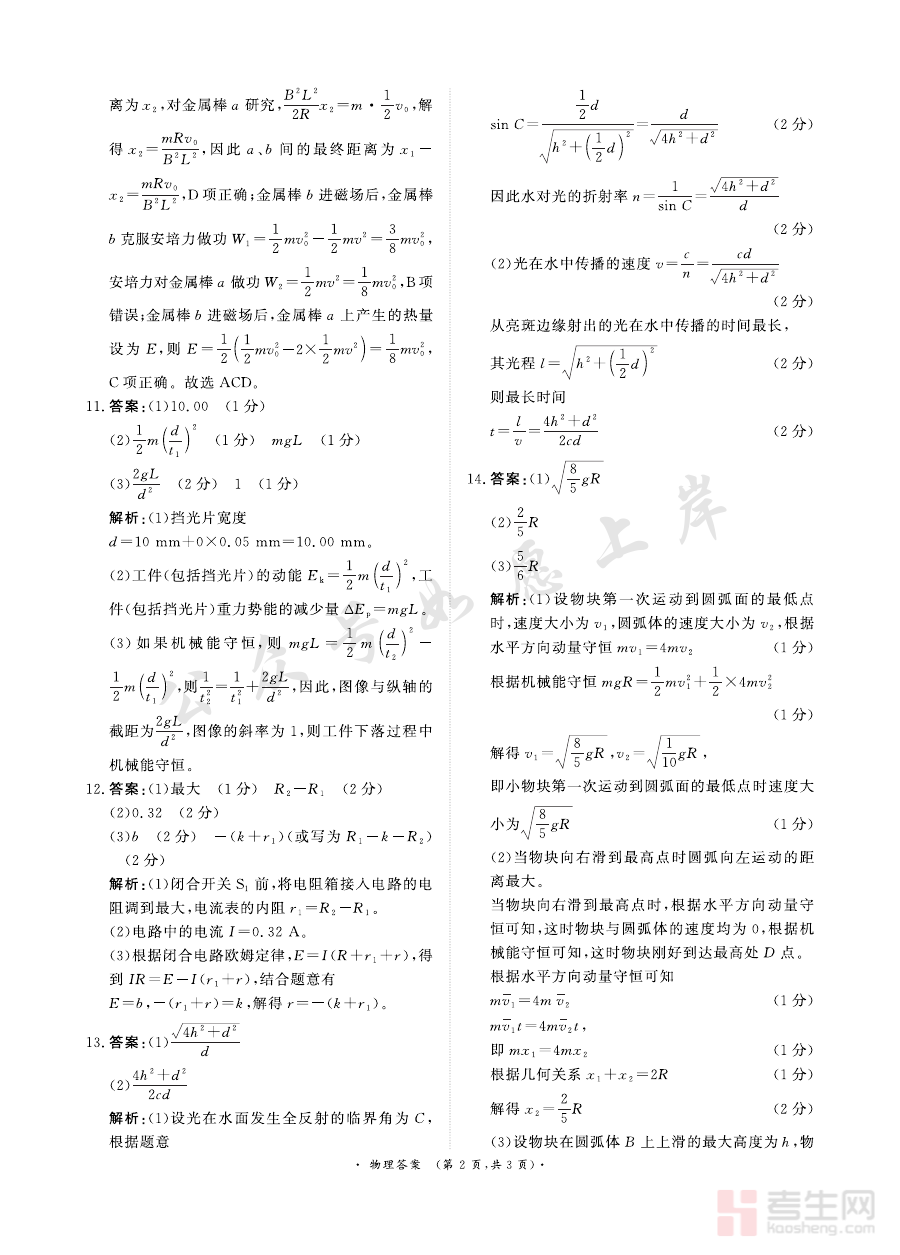 离为 x₂,对金属棒 a 研究,$\frac{B^2L^2}{2R}x_2=m\cdot\frac{1}{2}v_0$,解
得 $x_2=\frac{mRv_0}{B^2L^2}$,因此 a、b 间的最终距离为 $x_1-$
$x_2=\frac{mRv_0}{B^2L^2}$,D项正确;金属棒 b 进磁场后,金属棒
b 克服安培力做功 $W_1=\frac{1}{2}mv_0^2-\frac{1}{2}mv^2=\frac{3}{8}mv_0^2$,
安培力对金属棒 a 做功 $W_2=\frac{1}{2}mv^2=\frac{1}{8}mv_0^2$,B项
错误;金属棒 b 进磁场后,金属棒 a 上产生的热量
设为 E,则 $E=\frac{1}{2}\left(\frac{1}{2}mv_0^2-2\times\frac{1}{2}mv^2\right)=\frac{1}{8}mv_0^2$,
C项正确。故选 ACD。
11. 答案:(1)10.00 (1分)
(2)$\frac{1}{2}m\left(\frac{d}{t_1}\right)^2$ (1分) mgL (1分)
(3)$\frac{2gL}{d^2}$ (2分) 1 (1分)
解析:(1)挡光片宽度
d=10 mm+0×0.05 mm=10.00 mm。
(2)工件(包括挡光片)的动能 $E_k=\frac{1}{2}m\left(\frac{d}{t_1}\right)^2$,工
件(包括挡光片)重力势能的减少量 $\Delta E_p=mgL$。
(3)如果机械能守恒,则 $mgL=\frac{1}{2}m\left(\frac{d}{t_2}\right)^2-$
$\frac{1}{2}m\left(\frac{d}{t_1}\right)^2$,则$\frac{1}{t_2^2}=\frac{1}{t_1^2}+\frac{2gL}{d^2}$,因此,图像与纵轴的
截距为$\frac{2gL}{d^2}$,图像的斜率为 1,则工件下落过程中
机械能守恒。
12. 答案:(1)最大 (1分) R₂−R₁ (2分)
(2)0.32 (2分)
(3)b (2分) −(k+r₁)(或写为 R₁−k−R₂)
(2分)
解析:(1)闭合开关 S₁ 前,将电阻箱接入电路的电
阻调到最大,电流表的内阻 r₁=R₂−R₁。
(2)电路中的电流 I=0.32 A。
(3)根据闭合电路欧姆定律,E=I(R+r₁+r),得
到 IR=E−I(r₁+r),结合题意有
E=b,−(r₁+r)=k,解得 r=−(k+r₁)。
13. 答案:(1)$\frac{\sqrt{4h^2+d^2}}{d}$
(2)$\frac{4h^2+d^2}{2cd}$
解析:(1)设光在水面发生全反射的临界角为 C,
根据题意
$\sin C=\frac{\frac{1}{2}d}{\sqrt{h^2+\left(\frac{1}{2}d\right)^2}}=\frac{d}{\sqrt{4h^2+d^2}}$ (2分)
因此水对光的折射率 $n=\frac{1}{\sin C}=\frac{\sqrt{4h^2+d^2}}{d}$
(2分)
(2)光在水中传播的速度 $v=\frac{c}{n}=\frac{cd}{\sqrt{4h^2+d^2}}$
(2分)
从亮斑边缘射出的光在水中传播的时间最长,
其光程 $l=\sqrt{h^2+\left(\frac{1}{2}d\right)^2}$ (2分)
则最长时间
$t=\frac{l}{v}=\frac{4h^2+d^2}{2cd}$ (2分)
14. 答案:(1)$\sqrt{\frac{8}{5}gR}$
(2)$\frac{2}{5}R$
(3)$\frac{5}{6}R$
解析:(1)设物块第一次运动到圆弧面的最低点
时,速度大小为 v₁,圆弧体的速度大小为 v₂,根据
水平方向动量守恒 mv₁=4mv₂ (1分)
根据机械能守恒 $mgR=\frac{1}{2}mv_1^2+\frac{1}{2}\times4mv_2^2$
(1分)
解得 $v_1=\sqrt{\frac{8}{5}gR}$,$v_2=\sqrt{\frac{1}{10}gR}$,
即小物块第一次运动到圆弧面的最低点时速度大
小为$\sqrt{\frac{8}{5}gR}$ (1分)
(2)当物块向右滑到最高点时圆弧向左运动的距
离最大。
当物块向右滑到最高点时,根据水平方向动量守
恒可知,这时物块与圆弧体的速度均为 0,根据机
械能守恒可知,这时物块刚好到达最高处 D 点。
根据水平方向动量守恒可知
$m\overline{v}_1=4m\overline{v}_2$ (1分)
$m\overline{v}_1t=4m\overline{v}_2t$,
即 mx₁=4mx₂ (1分)
根据几何关系 x₁+x₂=2R (1分)
解得 $x_2=\frac{2}{5}R$ (2分)
(3)设物块在圆弧体 B 上上滑的最大高度为 h,物
· 物理答案 (第 2 页,共 3 页) ·
公众号如愿上岸
考生网
kaosheng.com